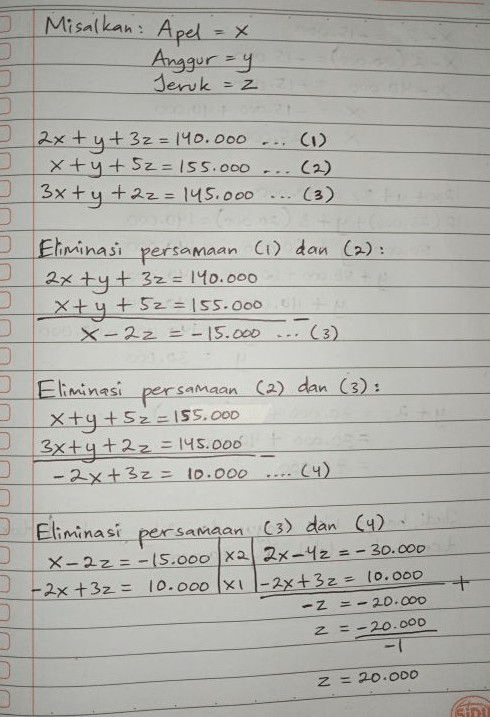 Misalkan: Apel = x
Anggur = y
Jeruk = z
2x + y + 3z = 140.000 ... (1)
x + y + 5z = 155.000 ... (2)
3x + y + 2z = 145.000 ... (3)
Eliminasi persamaan (1) dan (2):
2x + y + 3z = 140.000
x + y + 5z = 155.000 −
x − 2z = −15.000 ... (3)
Eliminasi persamaan (2) dan (3):
x + y + 5z = 155.000
3x + y + 2z = 145.000 −
−2x + 3z = 10.000 .... (4)
Eliminasi persamaan (3) dan (4).
x − 2z = −15.000 | x2 | 2x − 4z = −30.000
−2x + 3z = 10.000 | x1 | −2x + 3z = 10.000 +
−z = −20.000
z = −20.000
−1
z = 20.000
SiDU